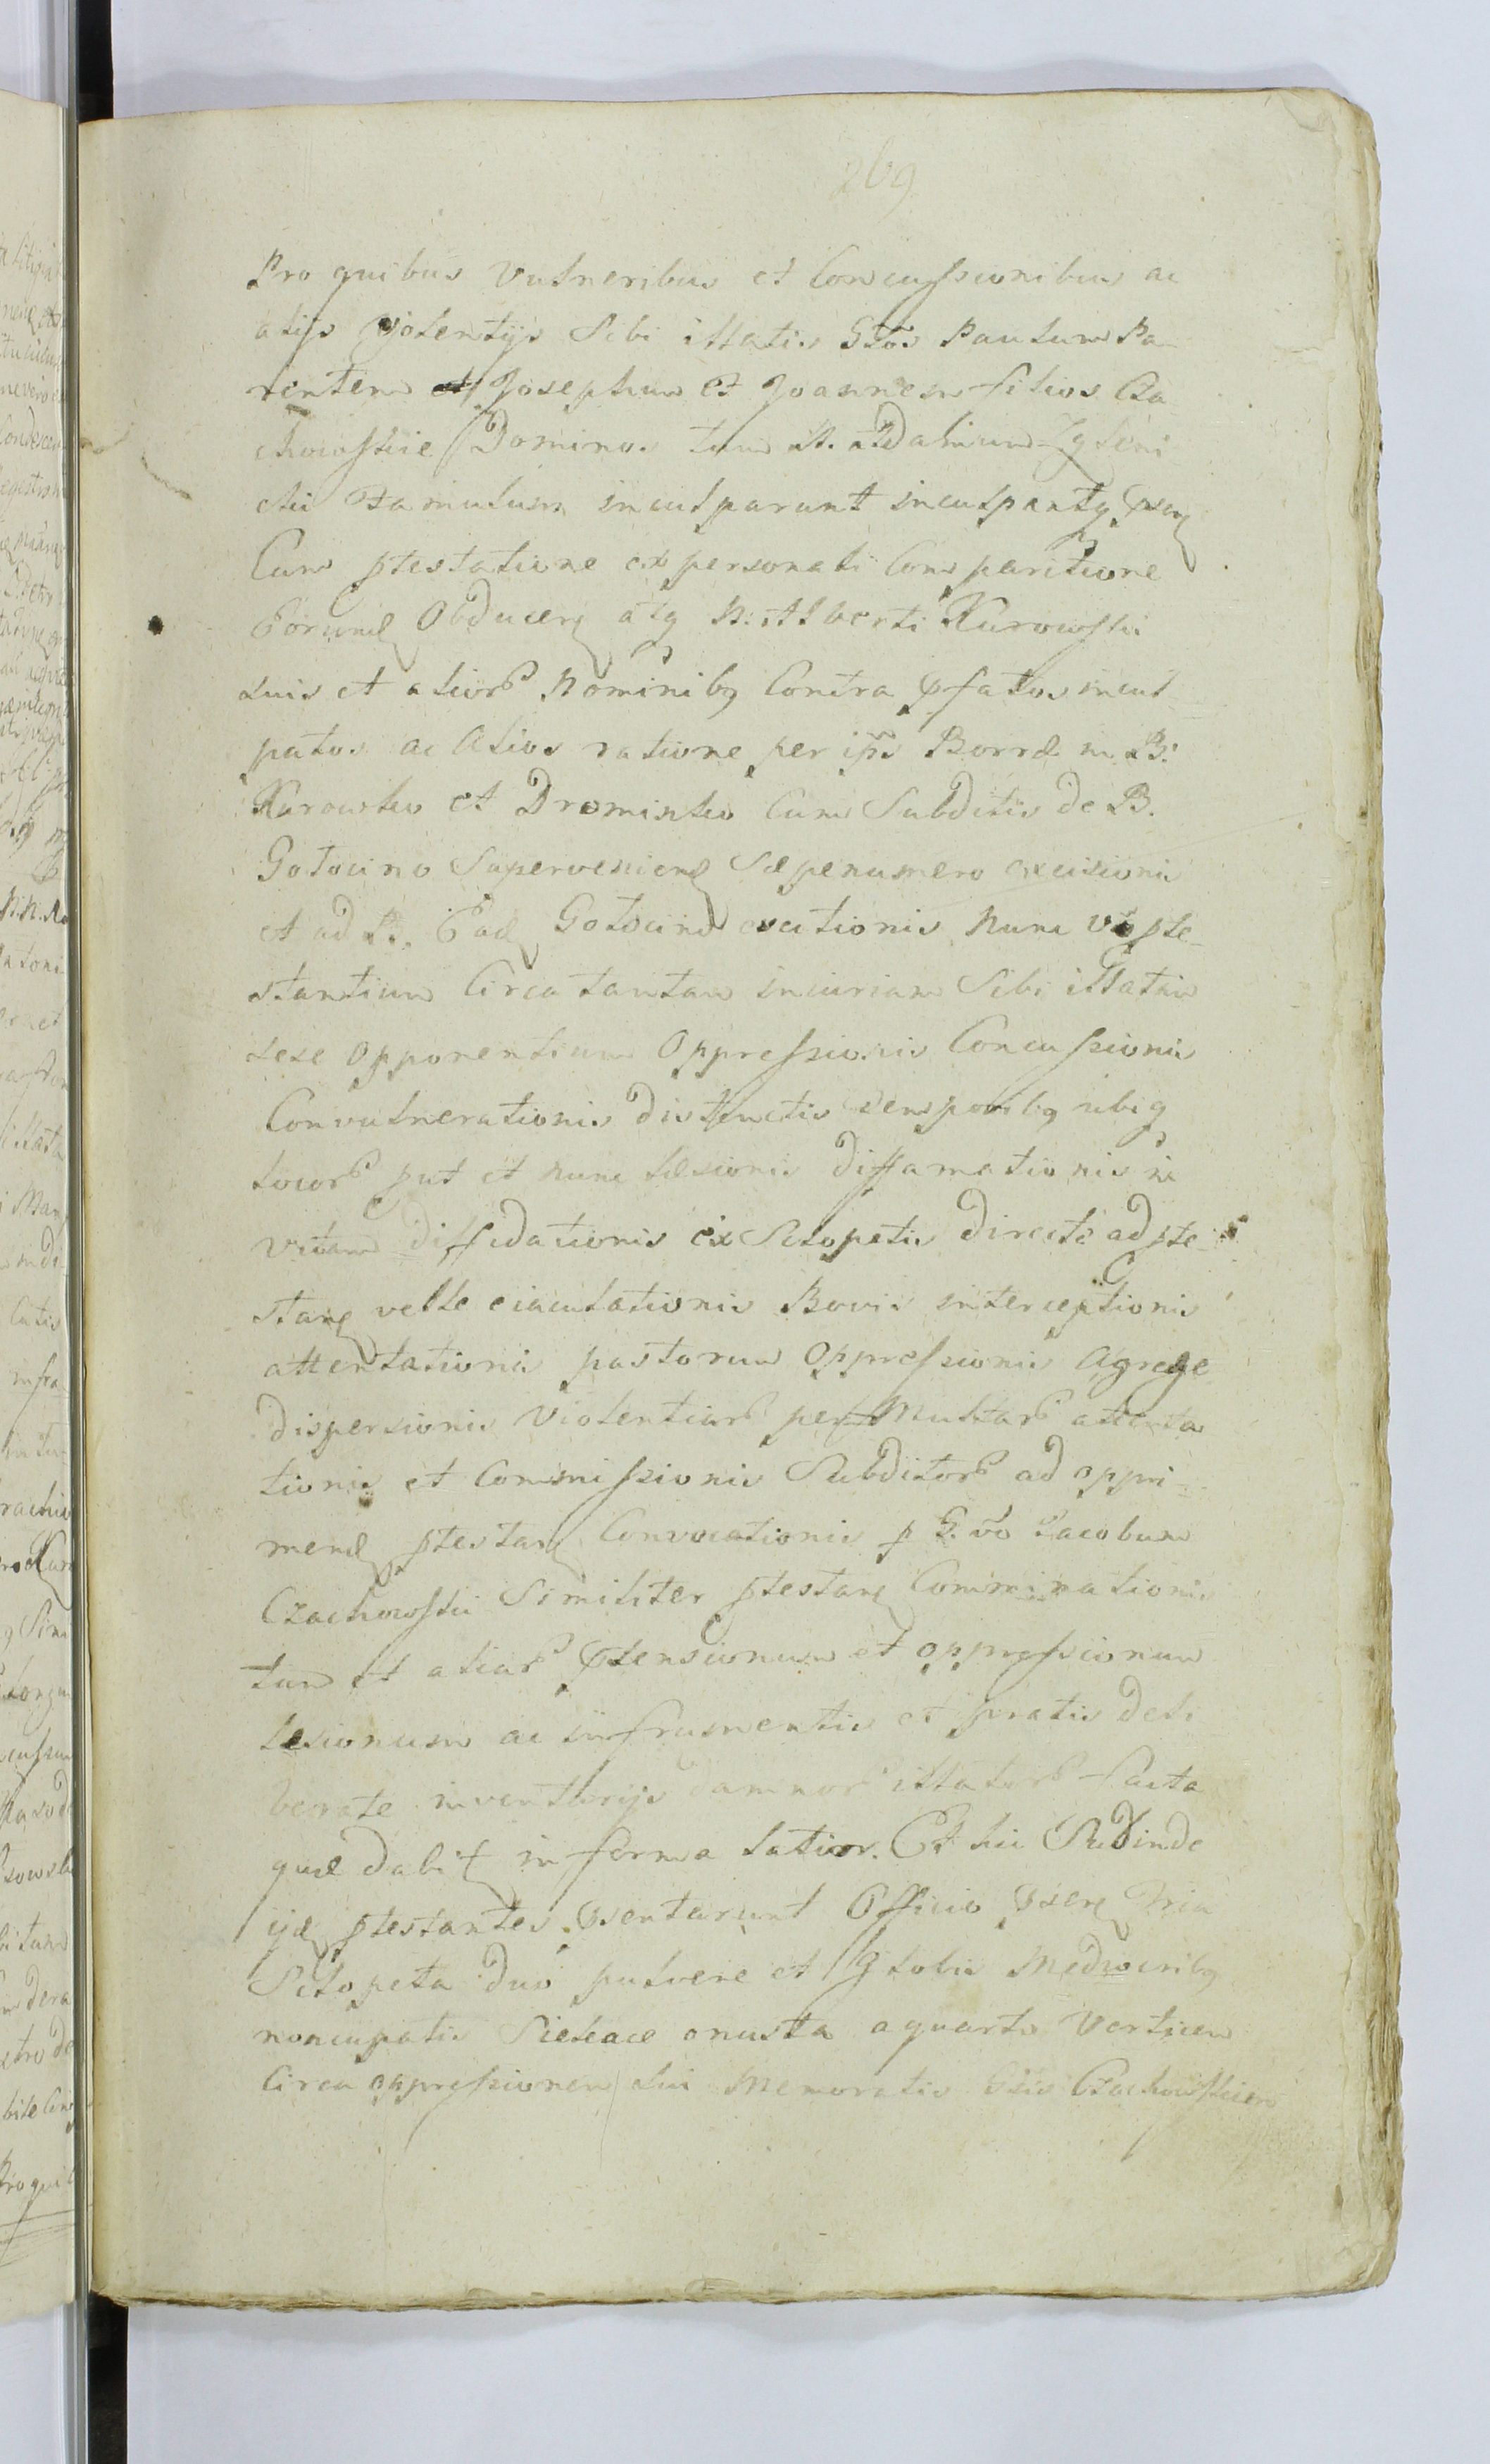 269
Pro quibus Vulneribus et Concussionibus ac
alijs Violentijs Sibi illatis Gsos Paulum Pa
rentem et Josephum et Joannem filios Cza
chowskie Dominos tum N. Zgleni
cki Famulum inculparunt inculpantq
Cum ptestatione ex personali Comparitione
Eorund Obducen atq N: Alberti Kurowski
suis et alior Nominibq Contra pfatos incul
patos ac Alios ratione per ipsos Borrae in B:
Kurowko et Drominko Cum Subditis de B.
Gotocino Supervenien Saepenumero excisionis
et ad B. Ead Gotocino evectionis Nunc vo pte
stantium Circa tantam iniuriam Sibi illatam
sese Opponentium Oppressionis Concussionis
Convulnerationis distinctis temporibq ubiq
locor put et nunc laesionis diffamationis in
vitam diffidationis ex Sclopetis directe ad pte
stan velle eiaculationis Bovis interceptionis
attentationis pastorum Oppressionis A grege
dispersionis Violentiar per Multar attenta
tionis et Commissionis Subditor ad oppri
mend ptestan Convocationis p G. vo Jacobum
Czachowski Similiter ptestan Comminationis
tum et aliar ptensionum et oppressionum
laesionum ac in frumentis et pratis deli
berate inventorijs damnor illator facta
quae dabit in forma latior. Et hic Subinde
ijd ptestantes psentarunt Officio psen Tria
Sclopeta duo pulvere et Globis Mediocribq
noncupatis Siekace onusta a quarto Vertice
Circa oppressionem sui Memoratis Gsis Czachowskiem